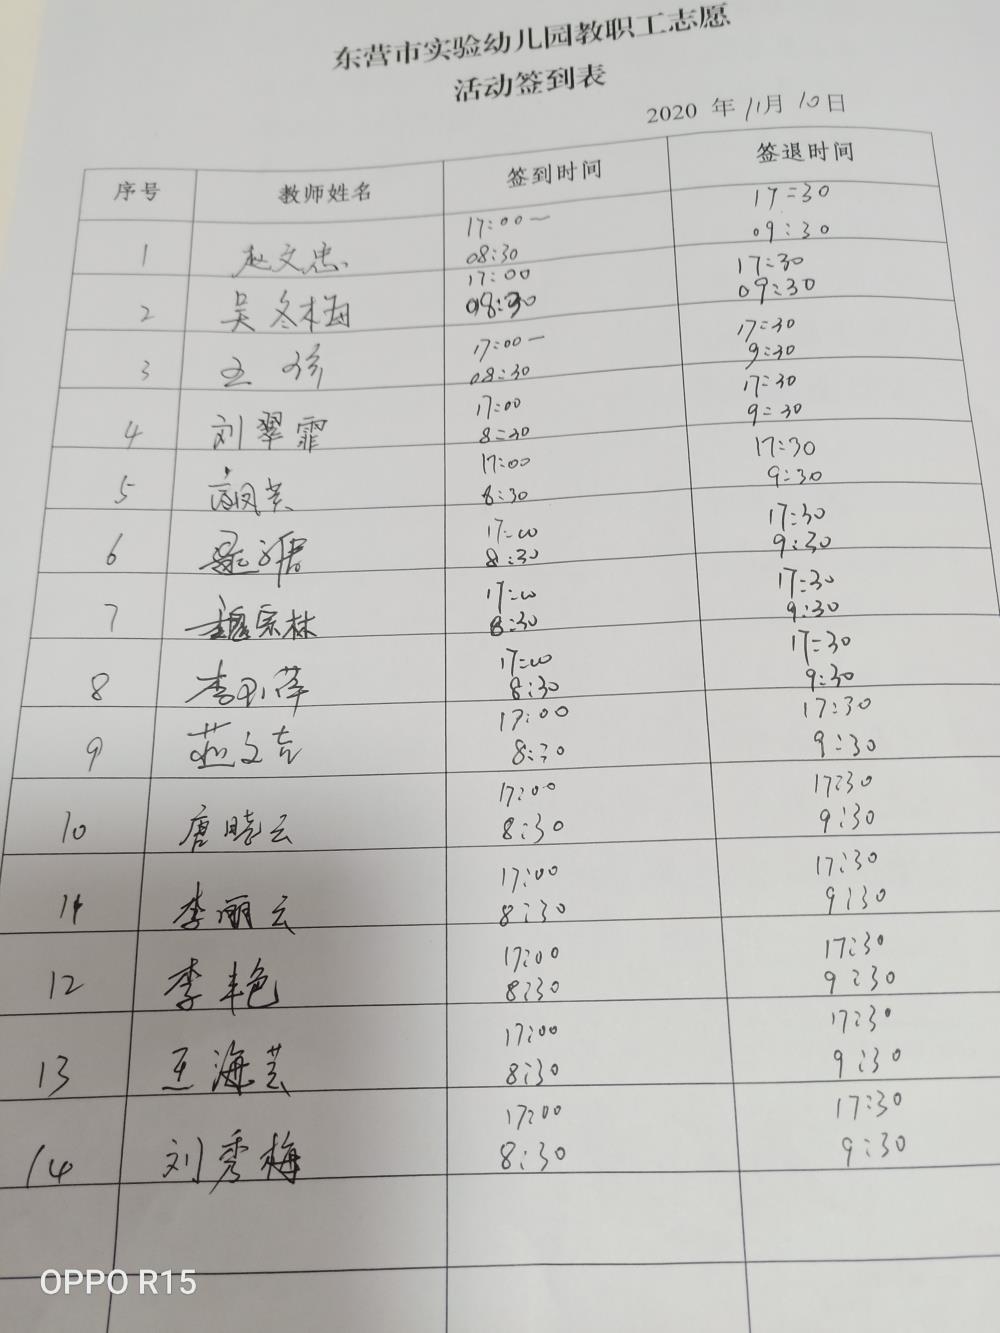 东营市实验幼儿园教职工志愿
活动签到表
2020 年 11月 10日
序号 教师姓名 签到时间 签退时间
17:00一 17:30
1 赵文忠 08:30 09:30
17:00 17:30
2 吴冬梅 08:30 09:30
17:00一 17:30
3 王 08:30 9:30
17:00 17:30
4 刘翠霏 8:30 9:30
17:00 17:30
5 8:30 9:30
17:00 17:30
6 8:30 9:30
17:00 17:30
7 宗林 8:30 9:30
17:00 17:30
8 李 萍 8:30 9:30
17:00 17:30
9 燕文吉 8:30 9:30
17:00 17:30
10 唐晓云 8:30 9:30
17:00 17:30
11 李丽云 8:30 9:30
17:00 17:30
12 李丰艳 8:30 9:30
17:00 17:30
13 王海芸 8:30 9:30
17:00 17:30
14 刘秀梅 8:30 9:30
OPPO R15